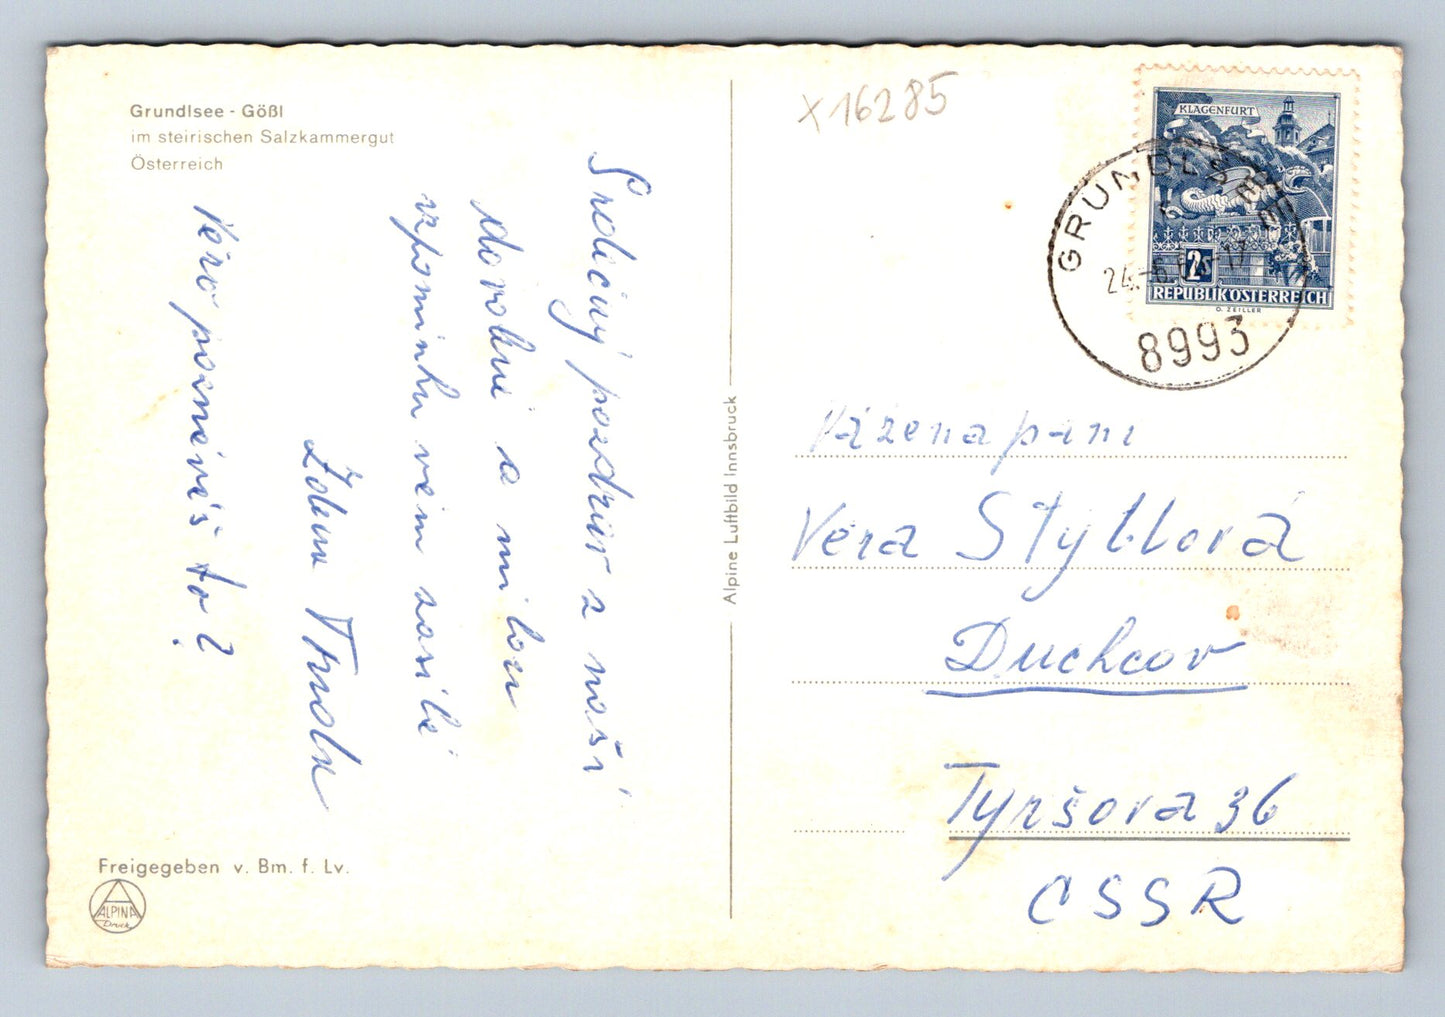 Grundlsee - Gößl
im steirischen Salzkammergut
Österreich
Srdečný pozdrav z naší
dovolené a milou
vzpomínku vám zasílá
Zdena
Věro poznáváš to?
Freigegeben v. Bm. f. Lv.
ALPINA
Druck
Alpine Luftbild Innsbruck
X16285
KLAGENFURT
2S
REPUBLIK ÖSTERREICH
O. ZEILLER
GRUNDLSEE
8993
Vážena paní
Věra Stýblová
Duchcov
Tyršova 36
CSSR